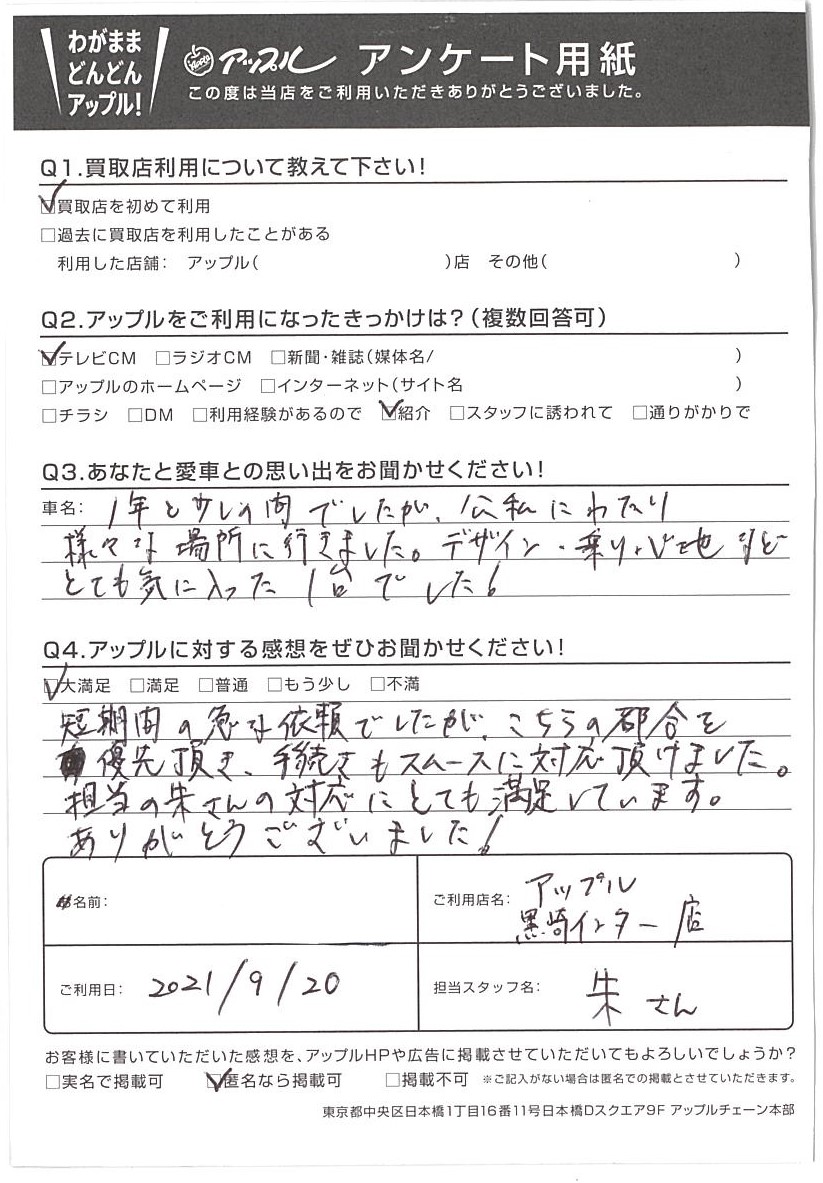 わがまま
どんどん
アップル!
アップル アンケート用紙
この度は当店をご利用いただきありがとうございました。
Q1.買取店利用について教えて下さい!
☑買取店を初めて利用
□過去に買取店を利用したことがある
利用した店舗: アップル( )店 その他( )
Q2.アップルをご利用になったきっかけは?(複数回答可)
☑テレビCM □ラジオCM □新聞・雑誌(媒体名/ )
□アップルのホームページ □インターネット(サイト名 )
□チラシ □DM □利用経験があるので ☑紹介 □スタッフに誘われて □通りがかりで
Q3.あなたと愛車との思い出をお聞かせください!
車名: 1年と少しの間でしたが、公私にわたり
様々な場所に行きました。デザイン・乗り心地など
とても気に入った1台でした!
Q4.アップルに対する感想をぜひお聞かせください!
☑大満足 □満足 □普通 □もう少し □不満
短期間の急な依頼でしたが、こちらの都合を
優先頂き、手続きもスムースに対応頂けました。
担当の朱さんの対応にとても満足しています。
ありがとうございました!
名前:
ご利用店名: アップル
黒崎インター店
ご利用日: 2021/9/20
担当スタッフ名: 朱さん
お客様に書いていただいた感想を、アップルHPや広告に掲載させていただいてもよろしいでしょうか?
□実名で掲載可 ☑匿名なら掲載可 □掲載不可 ※ご記入がない場合は匿名での掲載とさせていただきます。
東京都中央区日本橋1丁目16番11号日本橋Dスクエア9F アップルチェーン本部